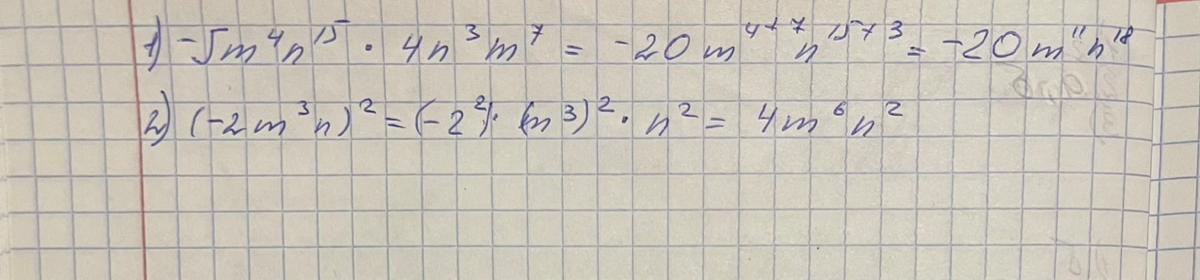 1) -5m⁴n¹⁵ · 4n³m⁷ = -20m⁴⁺⁷n¹⁵⁺³ = -20m¹¹n¹⁸
2) (-2m³n)² = (-2²) · (m³)² · n² = 4m⁶n²